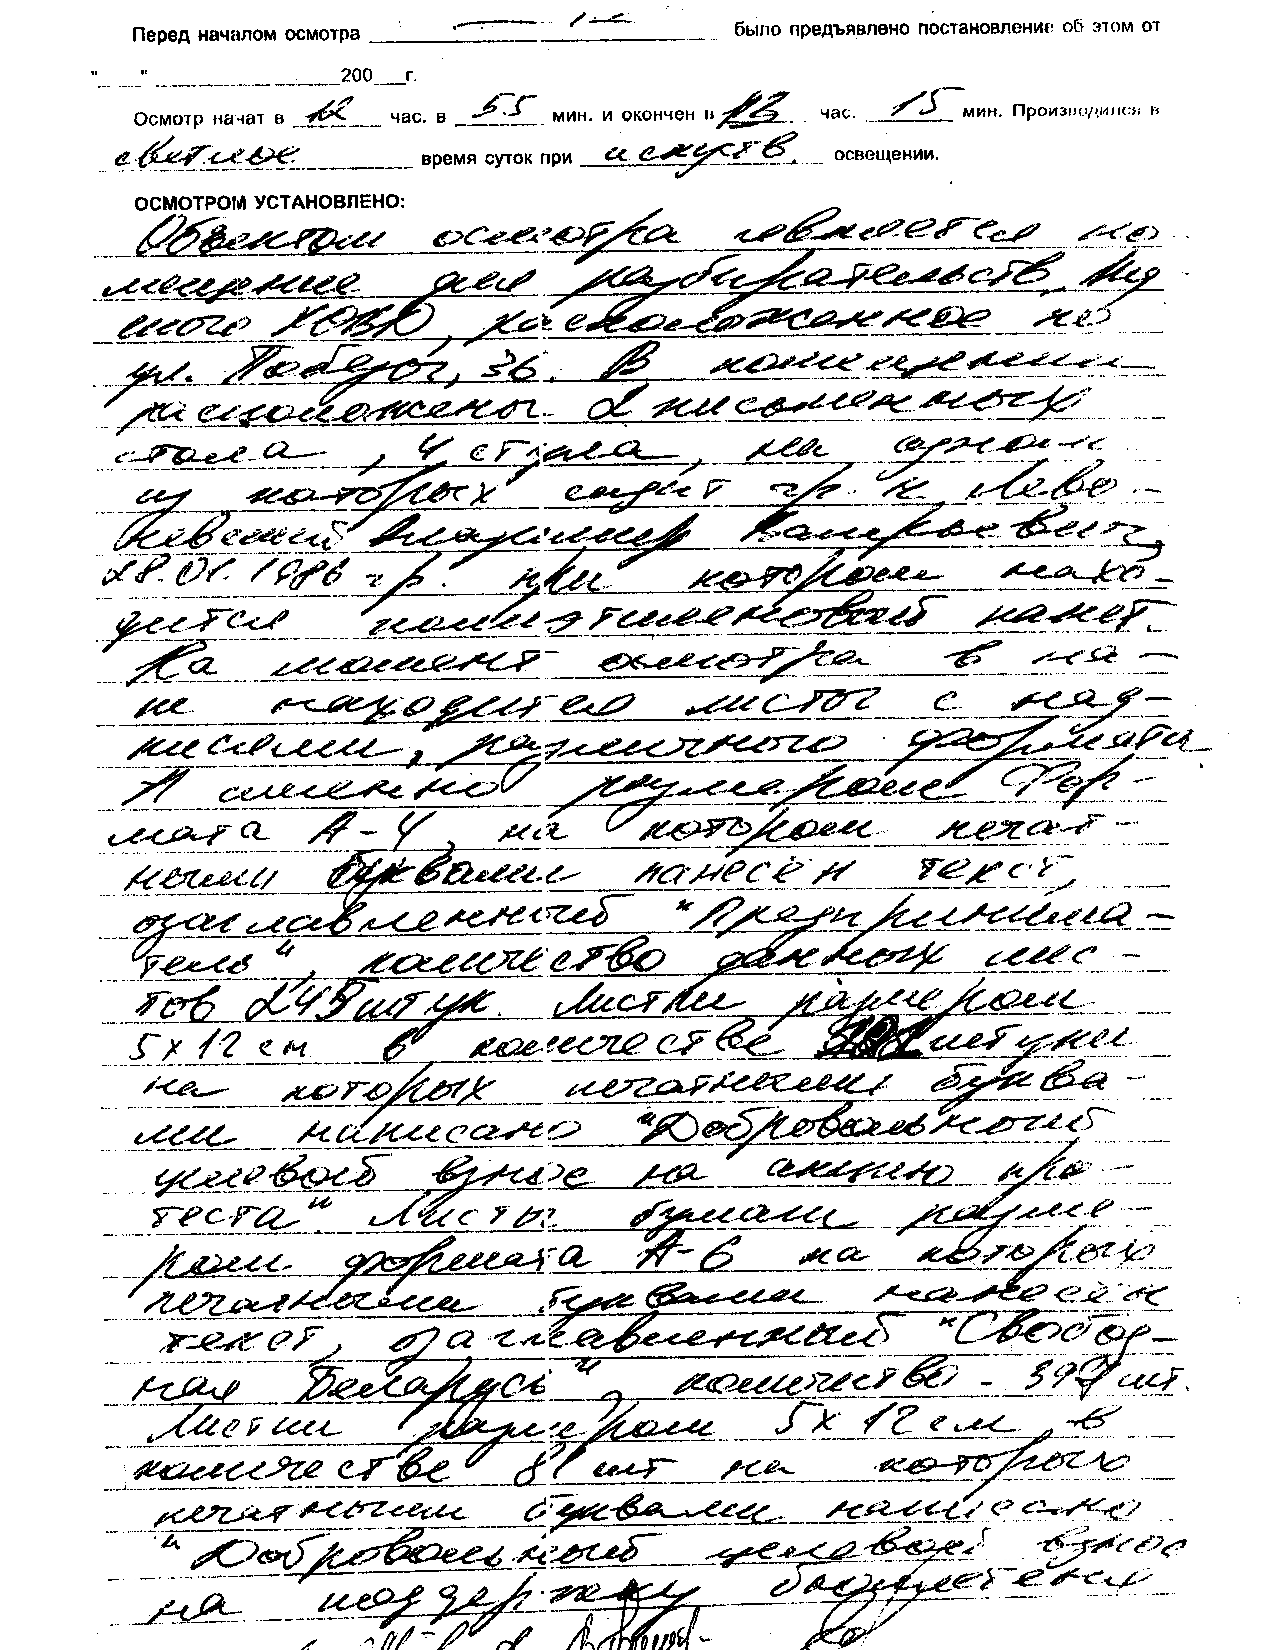 Перед началом осмотра было предъявлено постановление об этом от
" " 200 г.
Осмотр начат в 12 час. в 55 мин. и окончен в 13 час. 15 мин. Производился в
светлое время суток при искуств. освещении.
ОСМОТРОМ УСТАНОВЛЕНО:
Объектом осмотра является по
мещение для разбирательств
РОВД, расположенное по
ул. Победы, 36. В помещении
расположены 2 письменных
стола, 4 стула, на одном
из которых сидит гр-н Лево
невский Владимир Валерьевич,
28.01.1986 г.р. при котором нахо-
дится полиэтиленовый пакет.
На момент осмотра в па-
ке находится листы с над-
писями, различного формата
А именно размером Фор-
мата А-4, на котором печат-
ными буквами нанесен текст,
озаглавленный "Предпринима-
тель", количество данных лис-
тов 249 штук. Листки размером
5х12 см в количестве штуки
на которых печатными буква-
ми написано "Добровольный
целевой взнос на акцию про-
теста". Листы бумаги разме-
ром формата А-6 на которых
печатными буквами нанесён
текст, озаглавленный "Свобод-
ная Беларусь", количество - шт.
Листки размером 5х12 см в
количестве 81 шт на которых
печатными буквами написано
"Добровольный целевой взнос
на поддержку бюллетеня